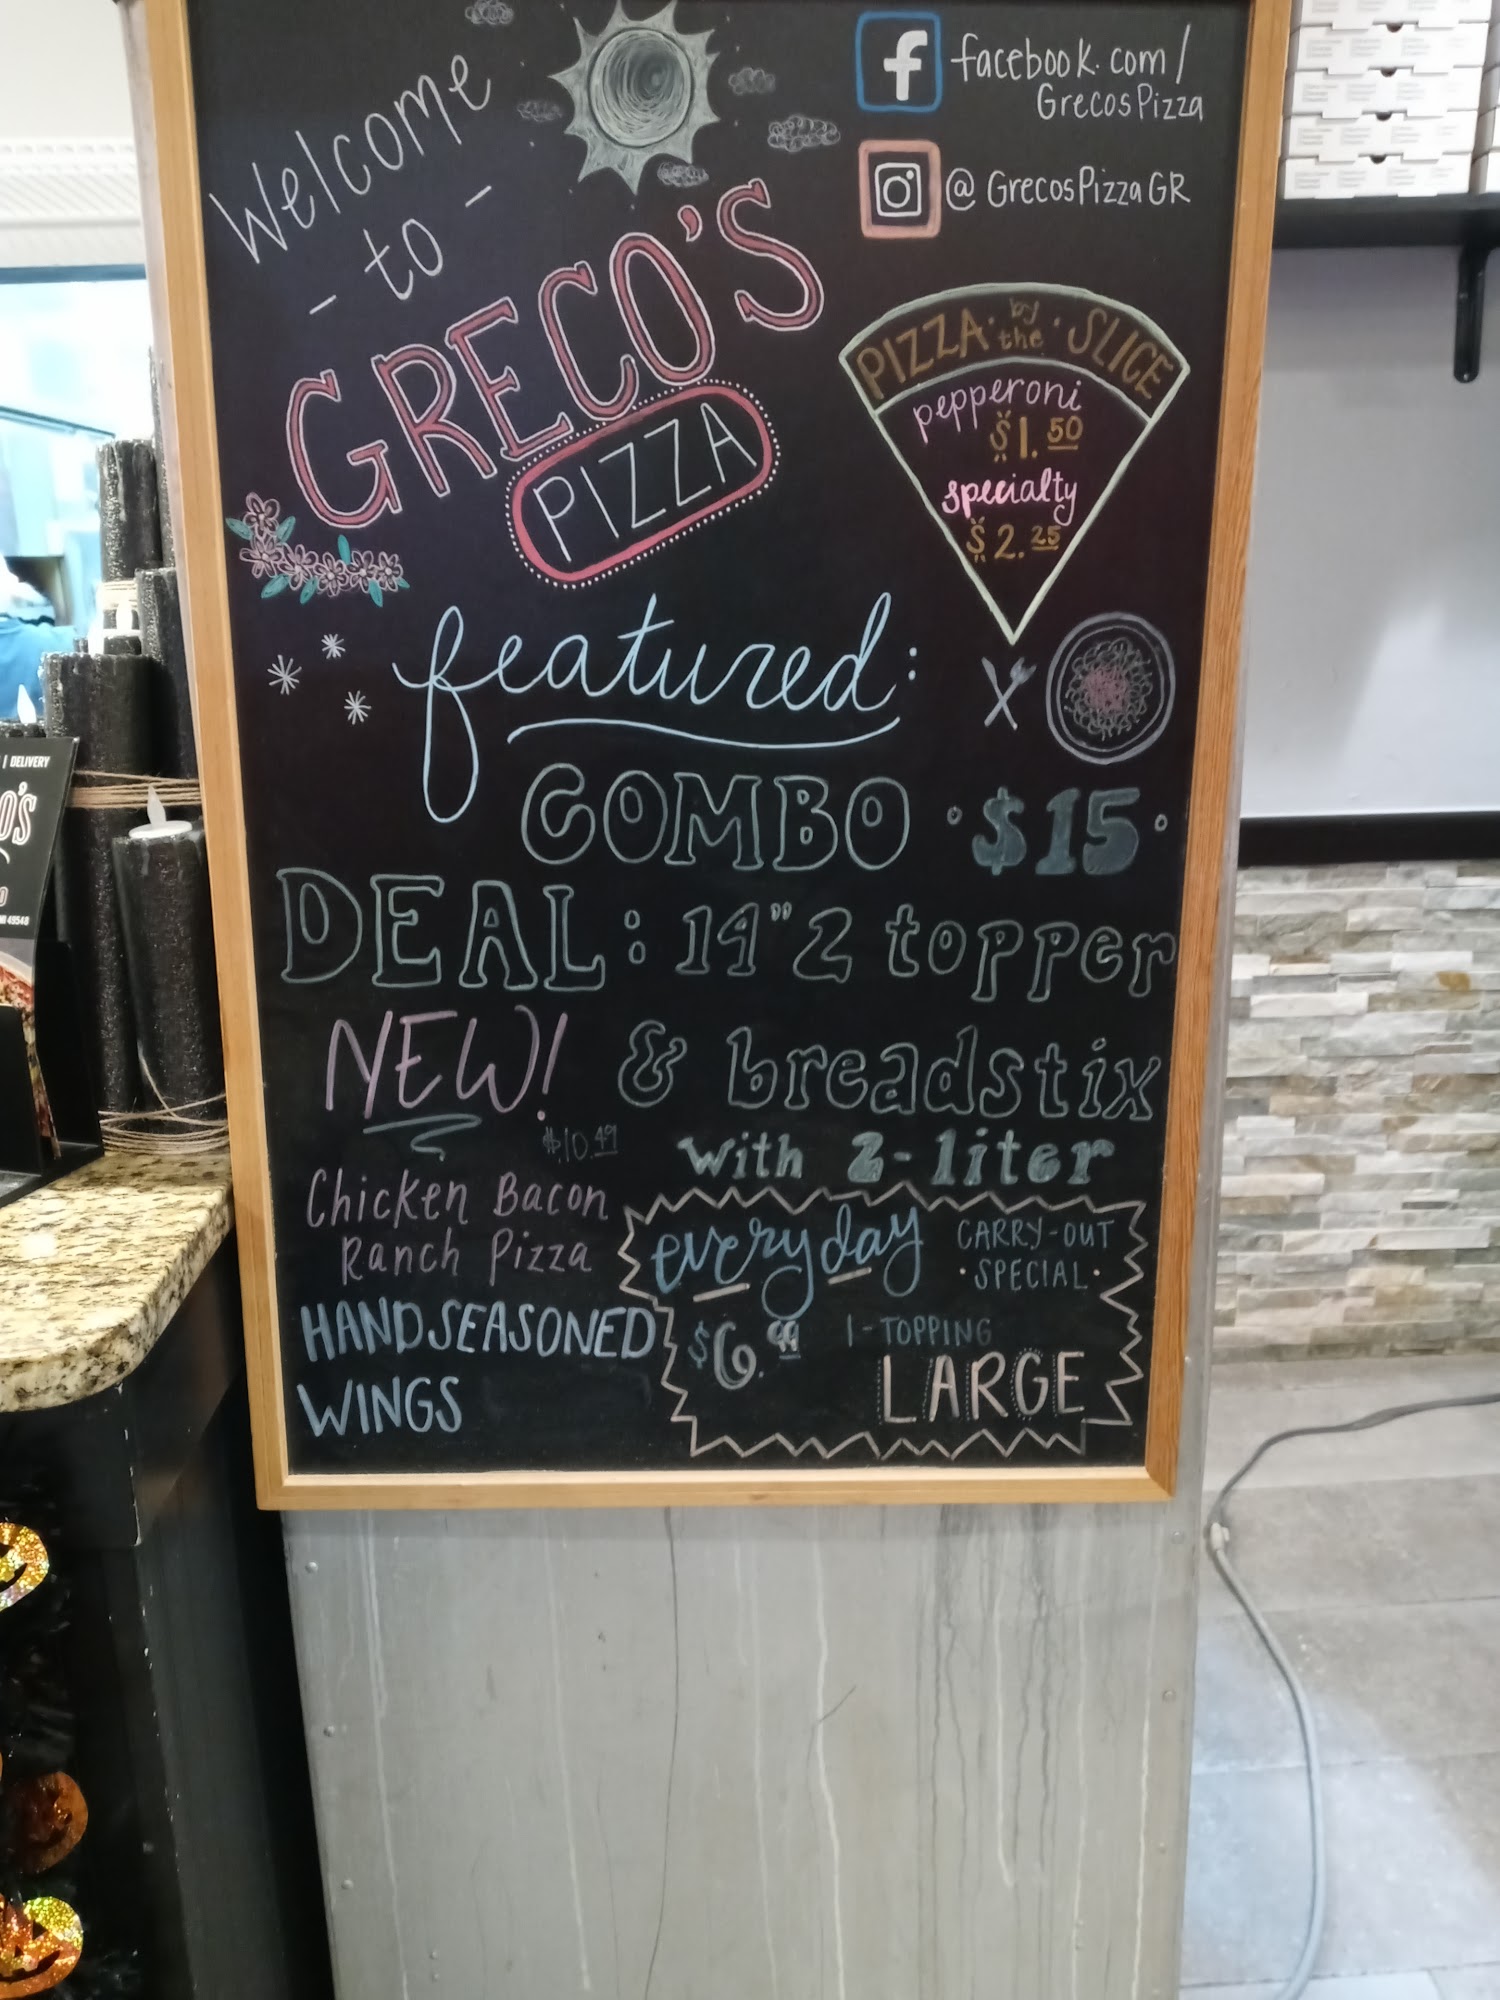 Welcome
- to -
GRECO'S
PIZZA
facebook.com/
GrecosPizza
@GrecosPizzaGR
PIZZA · by the · SLICE
pepperoni
$1.50
specialty
$2.25
featured:
COMBO · $15 ·
DEAL: 14" 2 topper
& breadstix
with 2-liter
NEW!
$10.49
Chicken Bacon
Ranch Pizza
HAND SEASONED
WINGS
everyday
CARRY-OUT
· SPECIAL ·
$6.99 1-TOPPING
LARGE
| DELIVERY
O'S
49548